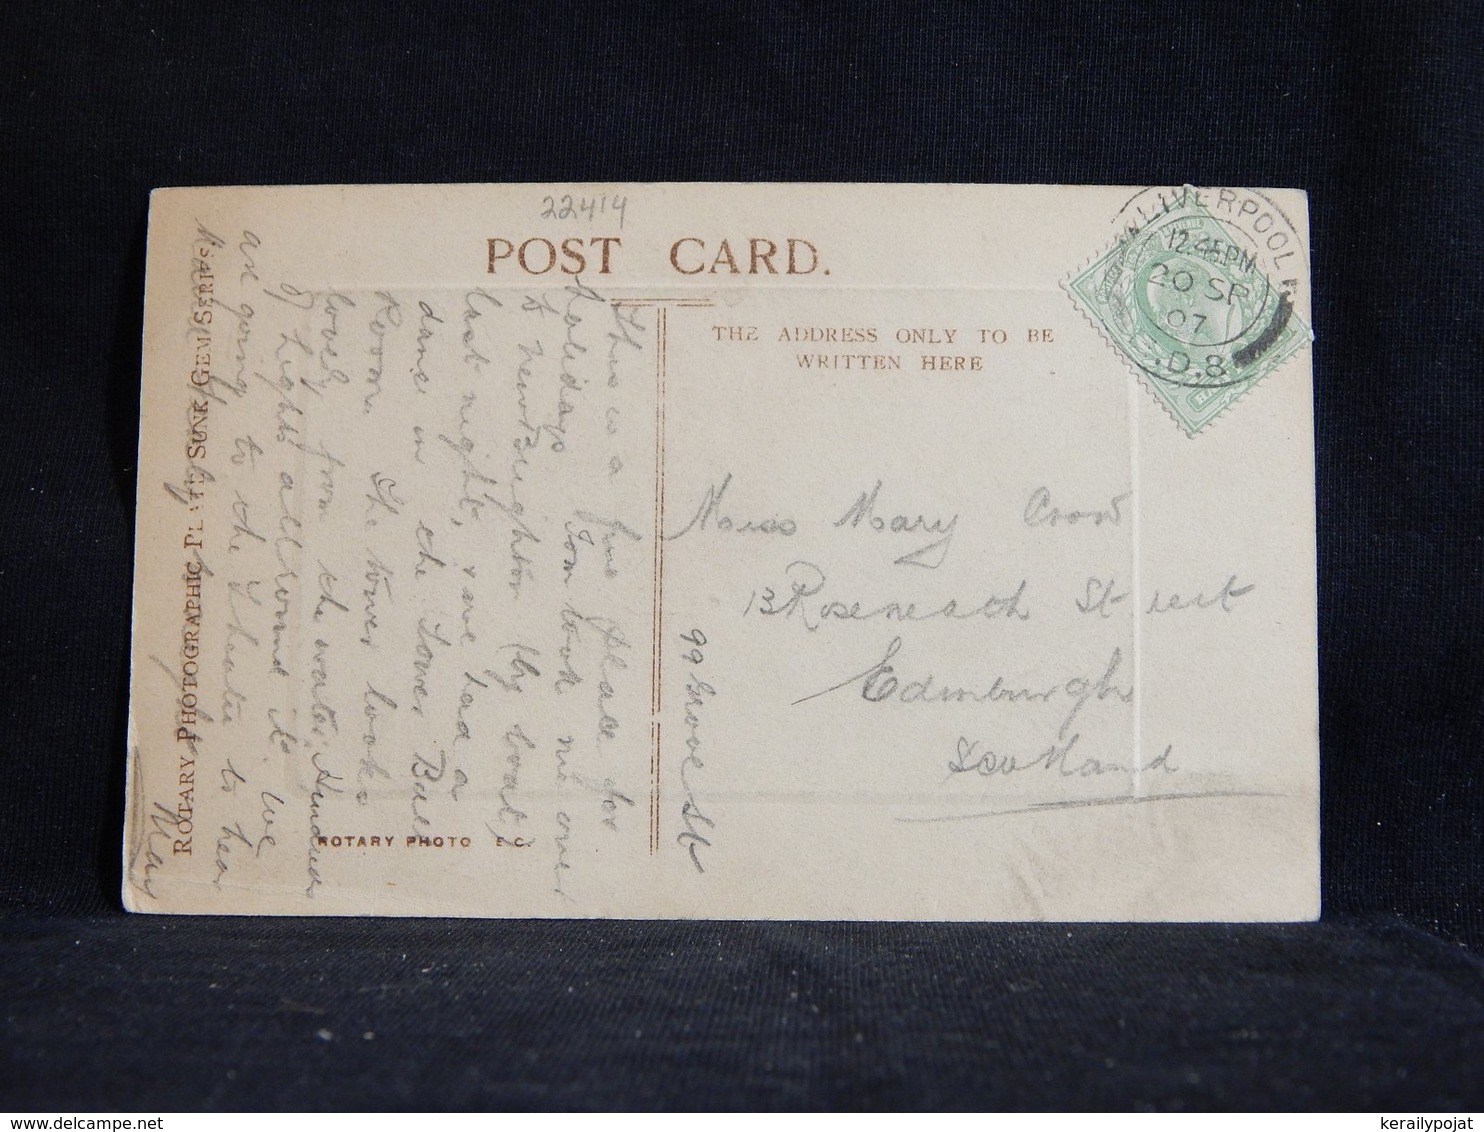 22414
POST CARD.
THE ADDRESS ONLY TO BE
WRITTEN HERE
LIVERPOOL
12.45PM
20 SP
07
.D.8.
Miss Mary Crow
13 Roseneath Street
Edinburgh
Scotland
99 Grove St
This is a fine place for
holidays. Tom took me over
to New Brighton (by boat)
last night, & we had a
dance in the Tower Ball
Room. The tower looks
lovely from the water, Hundreds
of lights all round it. We
are going to the Theatre to hear
May
ROTARY PHOTO E.C.
ROTARY PHOTOGRAPHIC PLATE SUNK GEM SERIES
kerailypojat